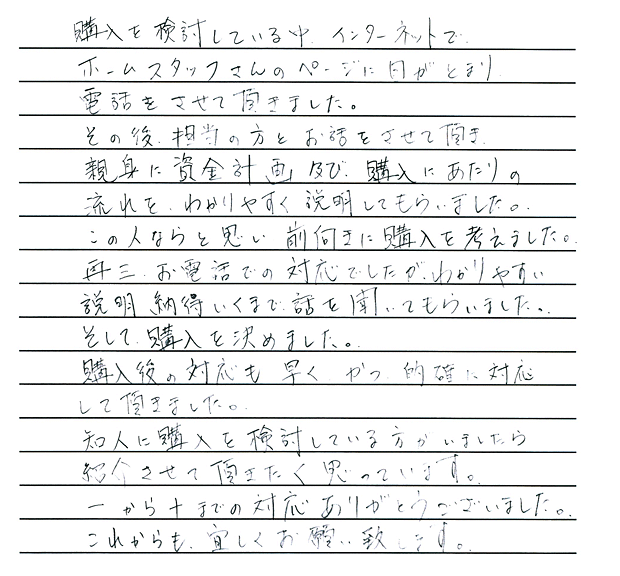 購入を検討している中、インターネットで、
ホームスタッフさんのページに目がとまり
電話をさせて頂きました。
その後、担当の方とお話をさせて頂き、
親身に資金計画、及び、購入にあたりの
流れを、わかりやすく説明してもらいました。
この人ならと思い前向きに購入を考えました。
再三、お電話での対応でしたが、わかりやすい
説明、納得いくまで、話を聞いてもらいました。
そして、購入を決めました。
購入後の対応も早く、かつ、的確に対応
して頂きました。
知人に購入を検討している方がいましたら
紹介させて頂きたく思っています。
一から十までの対応ありがとうございました。
これからも、宜しくお願い致します。